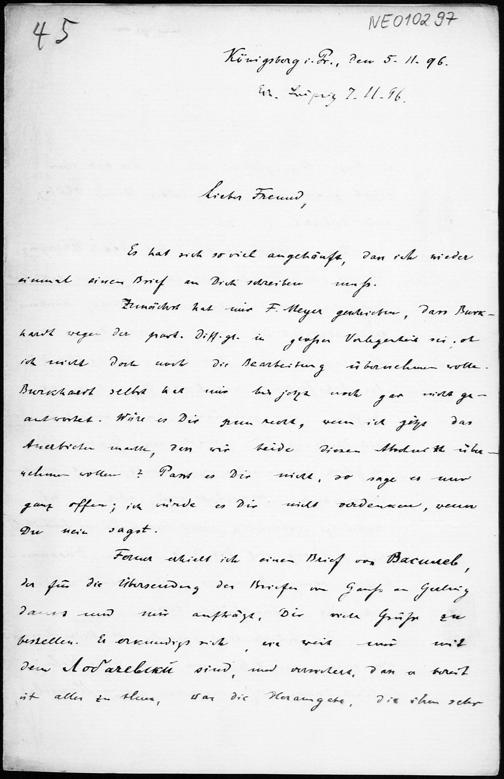 45
NE010297
Königsberg i. Pr., den 5-11-96.
Er. Leipzig 7-11-96.
Lieber Freund,
Es hat sich soviel angehäuft, dass ich wieder
einmal einen Brief an Dich schreiben muss.
Zunächst hat mir F. Meyer geschrieben, dass Burk-
hardt wegen der part. Diff.gl. in grosser Verlegenheit sei, ob
ich nicht doch noch die Bearbeitung übernehmen wolle.
Burkhardt selbst hat mir bis jetzt noch gar nicht ge-
antwortet. Wäre es Dir nun recht, wenn ich jetzt das
Anerbieten machte, dass wir beide diesen Abschnitt über-
nehmen wollen? Passt es Dir nicht, so sage es nur
ganz offen; ich würde es Dir nicht verdenken, wenn
Du nein sagst.
Ferner erhielt ich einen Brief von Василев,
der für die Übersendung des Briefes von Gauss an Gerling
dankt und mir aufträgt, Dir viele Grüsse zu
bestellen. Er erkundigt sich, wie weit wir mit
dem Лобачевскій sind, und versichert, dass er bereit
ist alles zu thun, was die Herausgabe, die ihm sehr